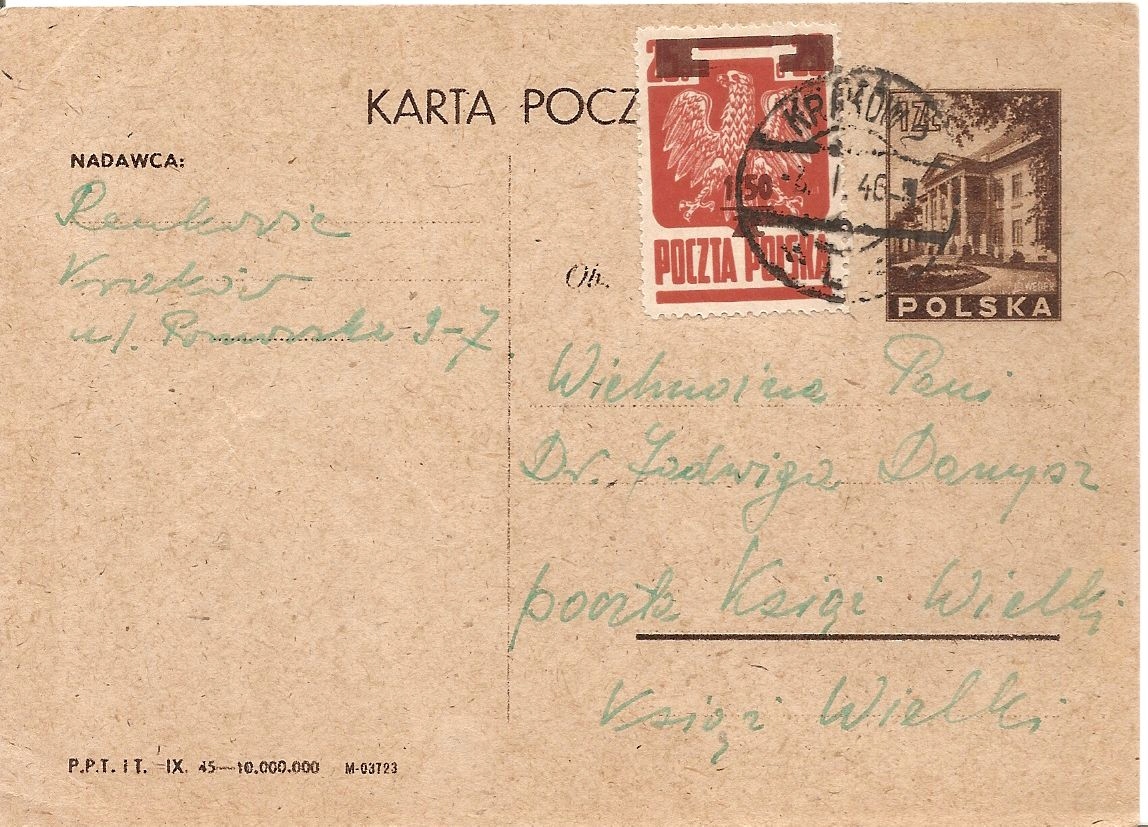 KARTA POCZ
NADAWCA:
Kraków
ul. Pomorska 9-7
1.50
POCZTA POLSKA
KRAKÓW
1 ZŁ
POLSKA
Ob.
Wielmożna Pani
Dr. Jadwiga Danysz
poczta Książ Wielki
Książ Wielki
P.P.T. i T. —IX. 45—10.000.000 M-03723